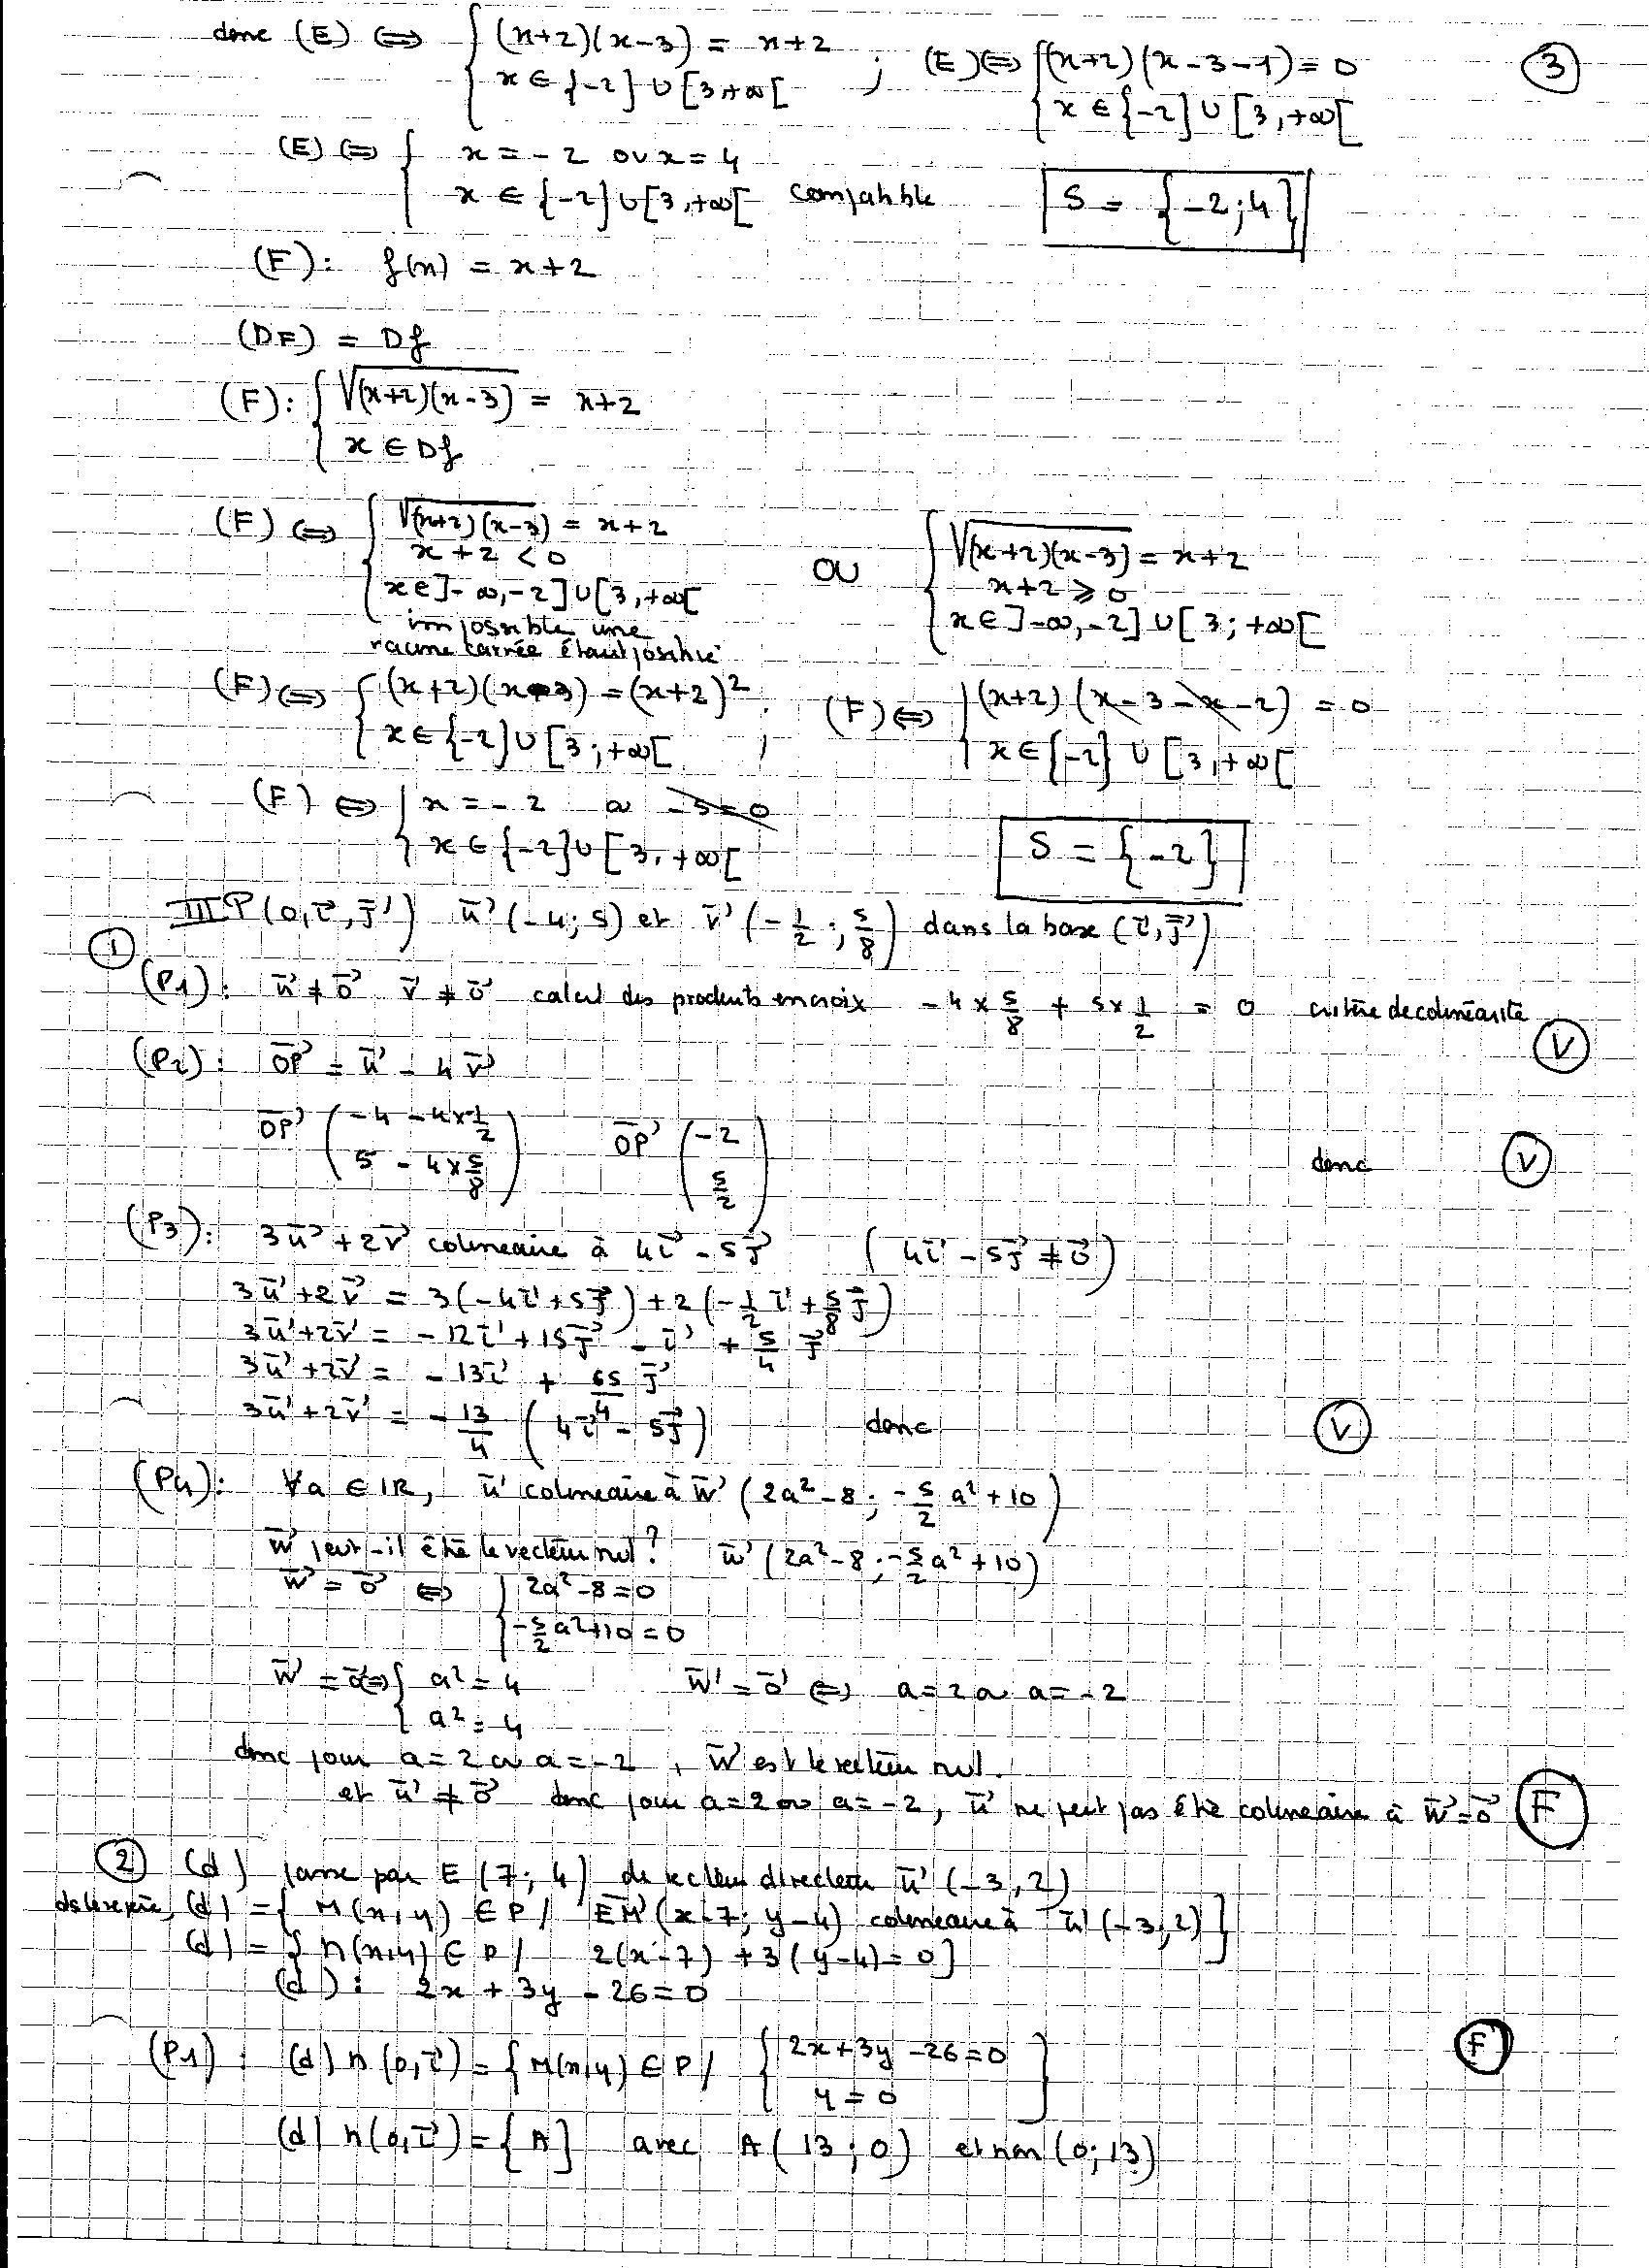 donc (E) ⟺ { (x+2)(x-3) = x+2 ; (E) ⟺ { (x+2)(x-3-1) = 0 ③
x ∈ {-2} ∪ [3,+∞[ x ∈ {-2} ∪ [3,+∞[
(E) ⟺ { x = -2 ou x = 4
x ∈ {-2} ∪ [3,+∞[ compatible S = {-2;4}
(F): f(x) = x+2
(DF) = Df
(F): { √(x+2)(x-3) = x+2
x ∈ Df
(F) ⟺ { √(x+2)(x-3) = x+2 OU { √(x+2)(x-3) = x+2
x+2 < 0 x+2 ⩾ 0
x ∈ ]-∞,-2] ∪ [3,+∞[ x ∈ ]-∞,-2] ∪ [3;+∞[
impossible une
racine carrée étant positive
(F) ⟺ { (x+2)(x-3) = (x+2)² ; (F) ⟺ { (x+2)(x-3-x-2) = 0
x ∈ {-2} ∪ [3;+∞[ x ∈ {-2} ∪ [3,+∞[
(F) ⟺ { x = -2 ou -5=0
x ∈ {-2} ∪ [3,+∞[ S = {-2}
III P (O,i⃗,j⃗) u⃗(-4;5) et v⃗(-1/2;5/8) dans la base (i⃗,j⃗)
①
(P1): u⃗ ≠ 0⃗ v⃗ ≠ 0⃗ calcul des produits en croix -4 × 5/8 + 5 × 1/2 = 0 critère de colinéarité
(V)
(P2): OP⃗ = u⃗ - 4v⃗
OP⃗ ( -4 - 4×1/2 ) OP⃗ ( -2 )
( 5 - 4×5/8 ) ( 5/2 ) donc (V)
(P3): 3u⃗+2v⃗ colineaire à 4i⃗ - 5j⃗ (4i⃗ - 5j⃗ ≠ 0⃗)
3u⃗+2v⃗ = 3(-4i⃗+5j⃗) + 2(-1/2 i⃗ + 5/8 j⃗)
3u⃗+2v⃗ = -12i⃗ + 15j⃗ - i⃗ + 5/4 j⃗
3u⃗+2v⃗ = -13i⃗ + 65/4 j⃗
3u⃗+2v⃗ = -13/4 (4i⃗ - 5j⃗) donc (V)
(P4): ∀a ∈ IR, u⃗ colineaire à w⃗ (2a²-8; -5/2 a²+10)
w⃗ peut-il être le vecteur nul? w⃗ (2a²-8; -5/2 a²+10)
w⃗ = 0⃗ ⟺ { 2a²-8=0
-5/2 a²+10=0
w⃗ = 0⃗ ⟺ { a² = 4 w⃗ = 0⃗ ⟺ a=2 ou a=-2
a² = 4
donc pour a=2 ou a=-2, w⃗ est le vecteur nul.
et u⃗ ≠ 0⃗ donc pour a=2 ou a=-2, u⃗ ne peut pas être colineaire à w⃗=0⃗ (F)
② (d) passe par E (7;4) de vecteur directeur u⃗ (-3,2)
ds le repère, (d) = { M(x,y) ∈ P / EM⃗ (x-7; y-4) colineaire à u⃗ (-3,2)}
(d) = { M(x,y) ∈ P / 2(x-7) + 3(y-4) = 0}
(d): 2x + 3y - 26 = 0
(P1): (d) ∩ (O,i⃗) = { M(x,y) ∈ P / { 2x+3y-26=0 } (F)
y = 0
(d) ∩ (O,i⃗) = {A} avec A (13;0) et non (0;13)